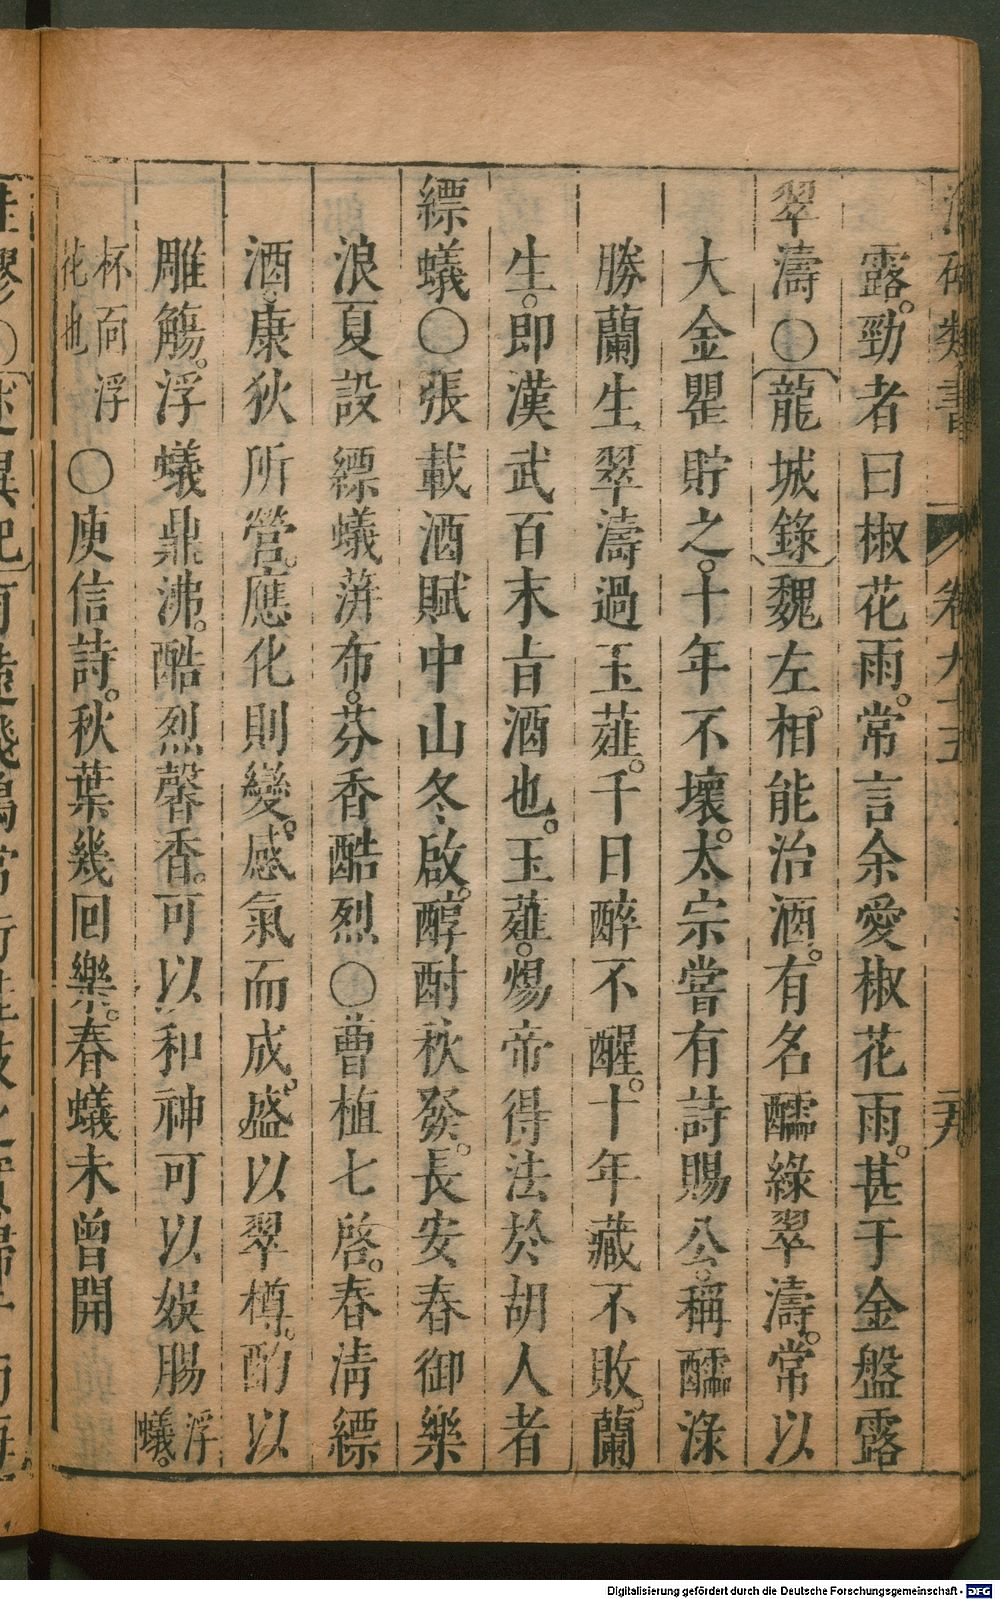 卷九十五
露。勁者曰椒花雨。常言余愛椒花雨。甚于金盤露
翠濤〇龍城錄魏左相能治酒。有名醽綠翠濤。常以
大金罌貯之。十年不壞。太宗嘗有詩賜公。稱醽淥
勝蘭生翠濤過玉薤。千日醉不醒。十年藏不敗。蘭
生。即漢武百末旨酒也。玉薤。煬帝得法於胡人者
縹蟻〇張載酒賦中山冬啟。醇酎秋發。長安春御樂
浪夏設縹蟻蓱布。芬香酷烈〇曹植七啓。春淸縹
酒。康狄所營。應化則變。感氣而成。盛以翠樽。酌以
雕觴。浮蟻鼎沸。酷烈馨香。可以和神可以娛腸浮蟻。
杯面浮花也〇庾信詩。秋葉幾囘樂。春蟻未曾開
Digitalisierung gefördert durch die Deutsche Forschungsgemeinschaft - DFG